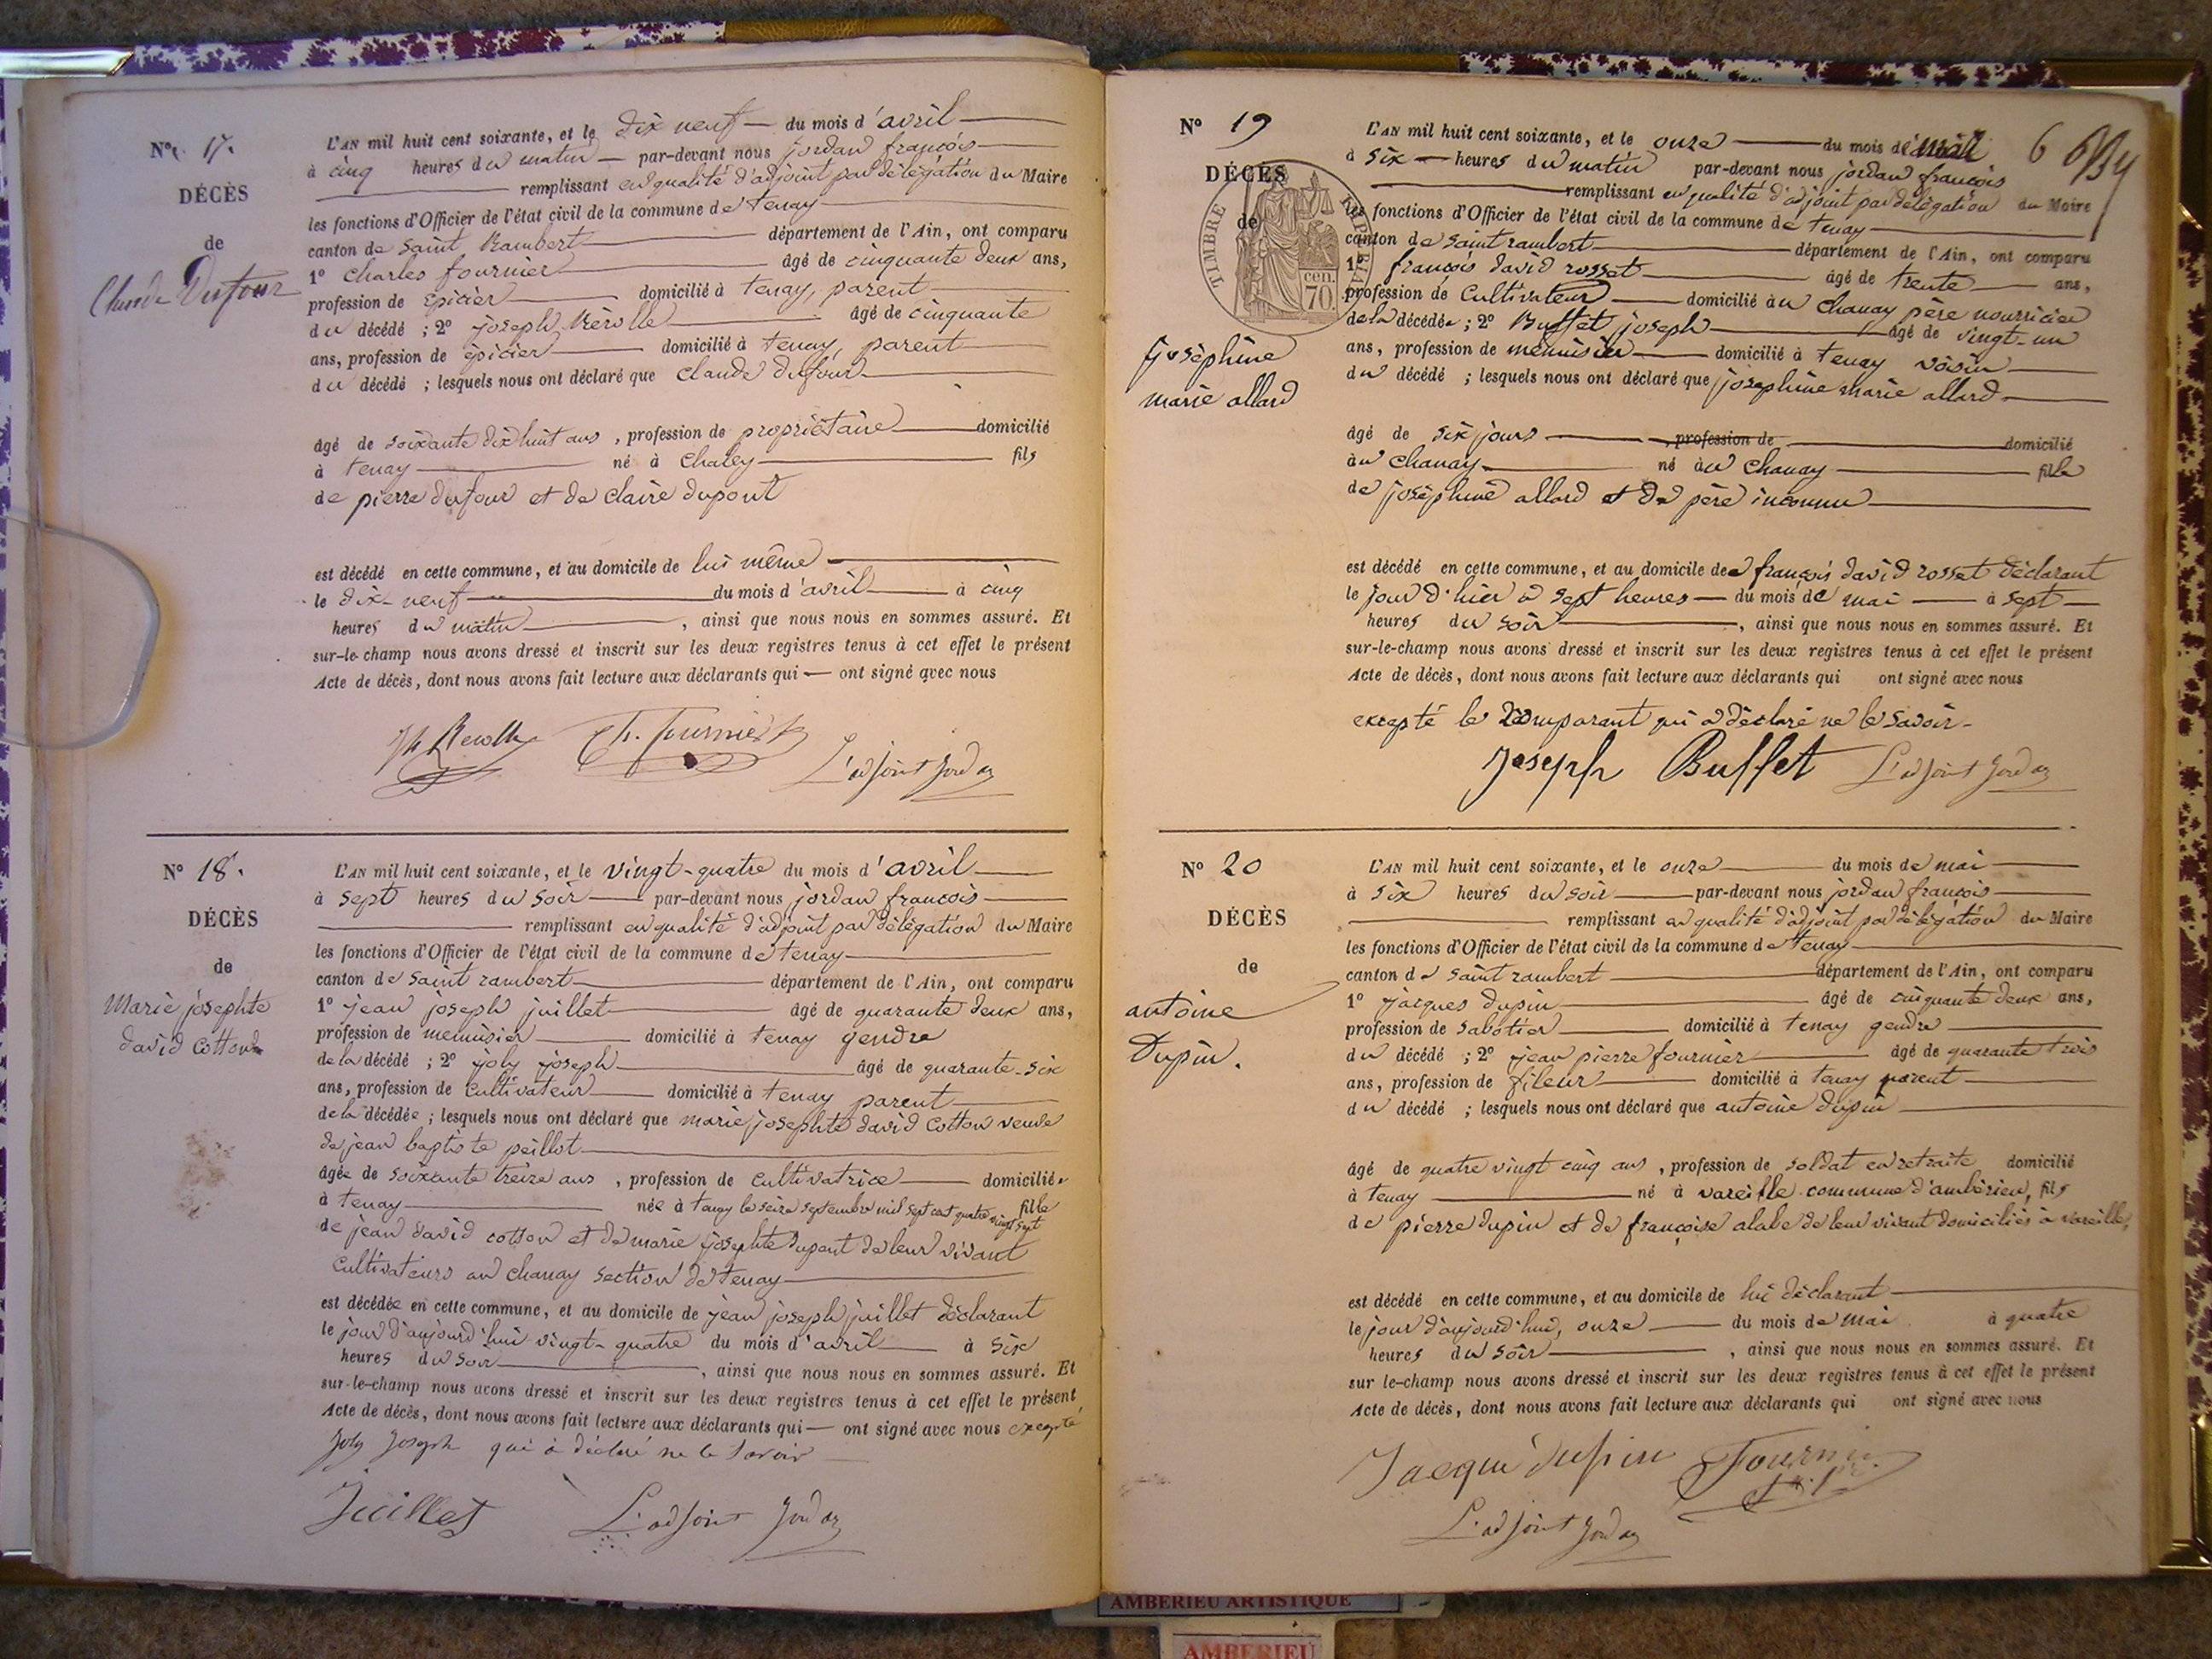 N° 17.
DÉCÈS
de
Claude Dufour
L'AN mil huit cent soixante, et le dix neuf du mois d'avril
à cinq heures du matin par-devant nous jordan françois
remplissant en qualité d'adjoint par délégation du Maire
les fonctions d'Officier de l'état civil de la commune de tenay
canton de Saint Rambert département de l'Ain, ont comparu
1° Charles fournier âgé de cinquante deux ans,
profession de épicier domicilié à tenay, parent
du décédé ; 2° joseph Rérolle âgé de cinquante
ans, profession de épicier domicilié à tenay, parent
du décédé ; lesquels nous ont déclaré que Claude dufour
âgé de soixante dix huit ans, profession de propriétaire domicilié
à tenay né à Chaley fils
de pierre dufour et de claire dupont
est décédé en cette commune, et au domicile de lui même
le dix-neuf du mois d'avril à cinq
heures du matin, ainsi que nous nous en sommes assuré. Et
sur-le-champ nous avons dressé et inscrit sur les deux registres tenus à cet effet le présent
Acte de décès, dont nous avons fait lecture aux déclarants qui — ont signé avec nous
Ch. Fournier L'adjoint Jordan
N° 18.
DÉCÈS
de
Marie josephte
david Cotton
L'AN mil huit cent soixante, et le vingt-quatre du mois d'avril
à sept heures du soir par-devant nous jordan françois
remplissant en qualité d'adjoint par délégation du Maire
les fonctions d'Officier de l'état civil de la commune de tenay
canton de Saint rambert département de l'Ain, ont comparu
1° jean joseph juillet âgé de quarante deux ans,
profession de menuisier domicilié à tenay gendre
de la décédé ; 2° joly joseph âgé de quarante-six
ans, profession de cultivateur domicilié à tenay parent
de la décédée ; lesquels nous ont déclaré que marie josephte david Cotton veuve
de jean baptiste peillot
âgée de soixante treize ans, profession de cultivatrice domiciliée
à tenay née à tenay le seize septembre mil sept cent quatre vingt sept fille
de jean david cotton et de marie josephte dupont de leur vivant
cultivateurs au chanay section de tenay
est décédée en cette commune, et au domicile de jean joseph juillet déclarant
le jour d'aujourd'hui vingt-quatre du mois d'avril à six
heures du soir, ainsi que nous nous en sommes assuré. Et
sur-le-champ nous avons dressé et inscrit sur les deux registres tenus à cet effet le présent
Acte de décès, dont nous avons fait lecture aux déclarants qui — ont signé avec nous excepté
Joly Joseph qui à déclaré ne le savoir
Juillet L'adjoint Jordan
N° 19
DÉCÈS
de
TIMBRE
cen.
70.
joséphine
marie allard
6
L'AN mil huit cent soixante, et le onze du mois de mai
à six heures du matin par-devant nous jordan françois
remplissant en qualité d'adjoint par délégation du Maire
les fonctions d'Officier de l'état civil de la commune de tenay
canton de Saint rambert département de l'Ain, ont comparu
1° françois david rosset âgé de trente ans,
profession de Cultivateur domicilié au Chanay père nourricier
de la décédée ; 2° Buffet joseph âgé de vingt-un
ans, profession de menuisier domicilié à tenay voisin
du décédé ; lesquels nous ont déclaré que josephine marie allard
âgé de six jours, profession de domicilié
au Chanay né au Chanay fille
de joséphine allard et de père inconnu
est décédé en cette commune, et au domicile de françois david rosset déclarant
le jour d'hier à sept heures du mois de mai à sept
heures du soir, ainsi que nous nous en sommes assuré. Et
sur-le-champ nous avons dressé et inscrit sur les deux registres tenus à cet effet le présent
Acte de décès, dont nous avons fait lecture aux déclarants qui ont signé avec nous
excepté le comparant qui a déclaré ne le savoir-
Joseph Buffet L'adjoint Jordan
N° 20
DÉCÈS
de
antoine
Dupin.
L'AN mil huit cent soixante, et le onze du mois de mai
à six heures du soir par-devant nous jordan françois
remplissant en qualité d'adjoint par délégation du Maire
les fonctions d'Officier de l'état civil de la commune de tenay
canton de saint rambert département de l'Ain, ont comparu
1° jacques dupin âgé de cinquante deux ans,
profession de sabotier domicilié à tenay gendre
du décédé ; 2° jean pierre fournier âgé de quarante trois
ans, profession de fileur domicilié à tenay parent
du décédé ; lesquels nous ont déclaré que antoine dupin
âgé de quatre vingt cinq ans, profession de soldat en retraite domicilié
à tenay né à vareille commune d'ambérieu, fils
de pierre dupin et de françoise alabe de leur vivant domiciliés à vareille,
est décédé en cette commune, et au domicile de lui déclarant
le jour d'aujourd'hui, onze du mois de mai à quatre
heures du soir, ainsi que nous nous en sommes assuré. Et
sur le-champ nous avons dressé et inscrit sur les deux registres tenus à cet effet le présent
Acte de décès, dont nous avons fait lecture aux déclarants qui ont signé avec nous
Jacque dupin Fournier
L'adjoint Jordan
AMBERIEU ARTISTIQUE
AMBERIEU